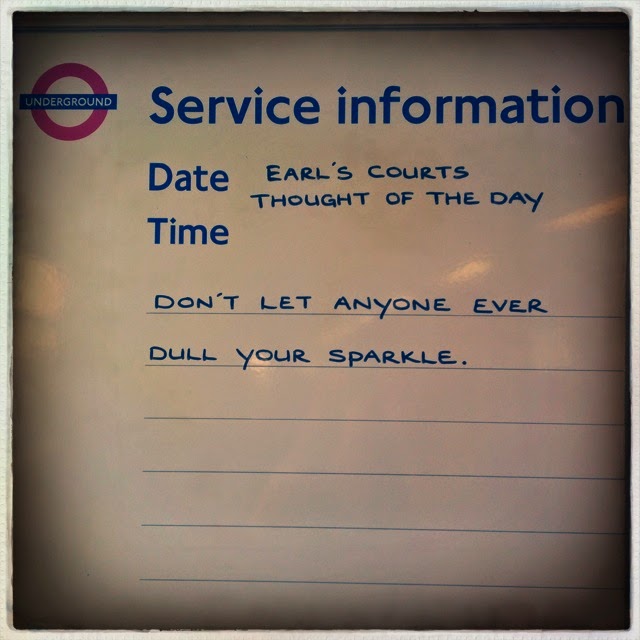 UNDERGROUND
Service information
Date EARL'S COURTS
THOUGHT OF THE DAY
Time
DON'T LET ANYONE EVER
DULL YOUR SPARKLE.